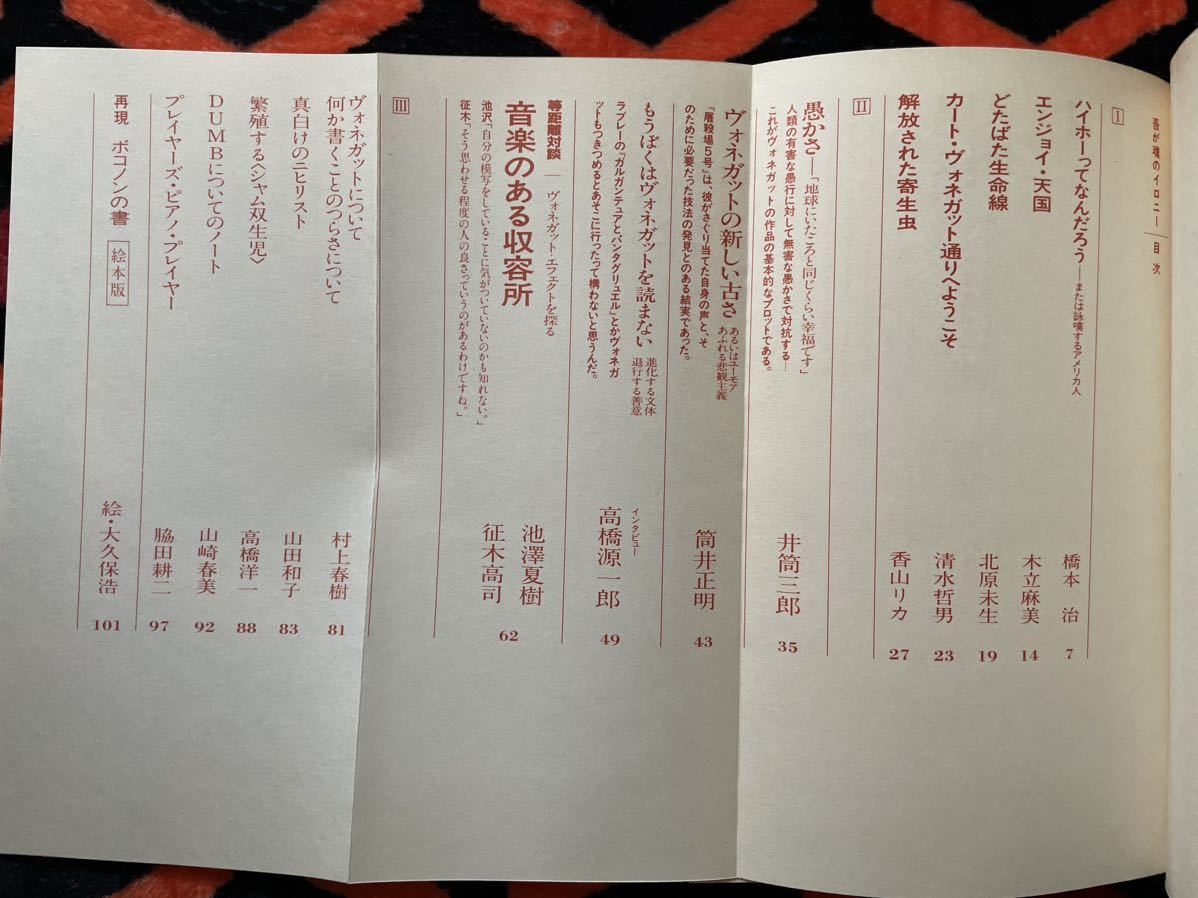 吾が魂のイロニー 目次
I
ハイホーってなんだろう──または詠嘆するアメリカ人
橋本 治 7
エンジョイ・天国
木立麻美 14
どたばた生命線
北原未生 19
カート・ヴォネガット通りへようこそ
清水哲男 23
解放された寄生虫
香山リカ 27
II
愚かさ──「地球にいたころと同じくらい幸福です」
人類の有害な愚行に対して無害な愚かさで対抗する──
これがヴォネガットの作品の基本的なプロットである。
井筒三郎 35
ヴォネガットの新しい古さ
あるいはユーモア
あふれる悲観主義
『屠殺場5号』は、彼がさぐり当てた自身の声と、そ
のために必要だった技法の発見とのある結実であった。
筒井正明 43
もうぼくはヴォネガットを読まない
進化する文体
退行する善意
ラブレーの『ガルガンテュアとパンタグリュエル』とかヴォネガ
ットもつきつめるとあそこに行ったって構わないと思うんだ。
インタビュー
高橋源一郎 49
等距離対談──ヴォネガット・エフェクトを探る
音楽のある収容所
池沢「自分の模写をしていることに気がついていないのかも知れない。」
征木「そう思わせる程度の人の良さっていうのがあるわけですね。」
池澤夏樹
征木高司
62
III
ヴォネガットについて
何か書くことのつらさについて
村上春樹 81
真白けのニヒリスト
山田和子 83
繁殖する〈シャム双生児〉
高橋洋一 88
DUMBについてのノート
山崎春美 92
プレイヤーズ・ピアノ・プレイヤー
脇田耕二 97
再現 ボコノンの書 絵本版
絵・大久保浩 101